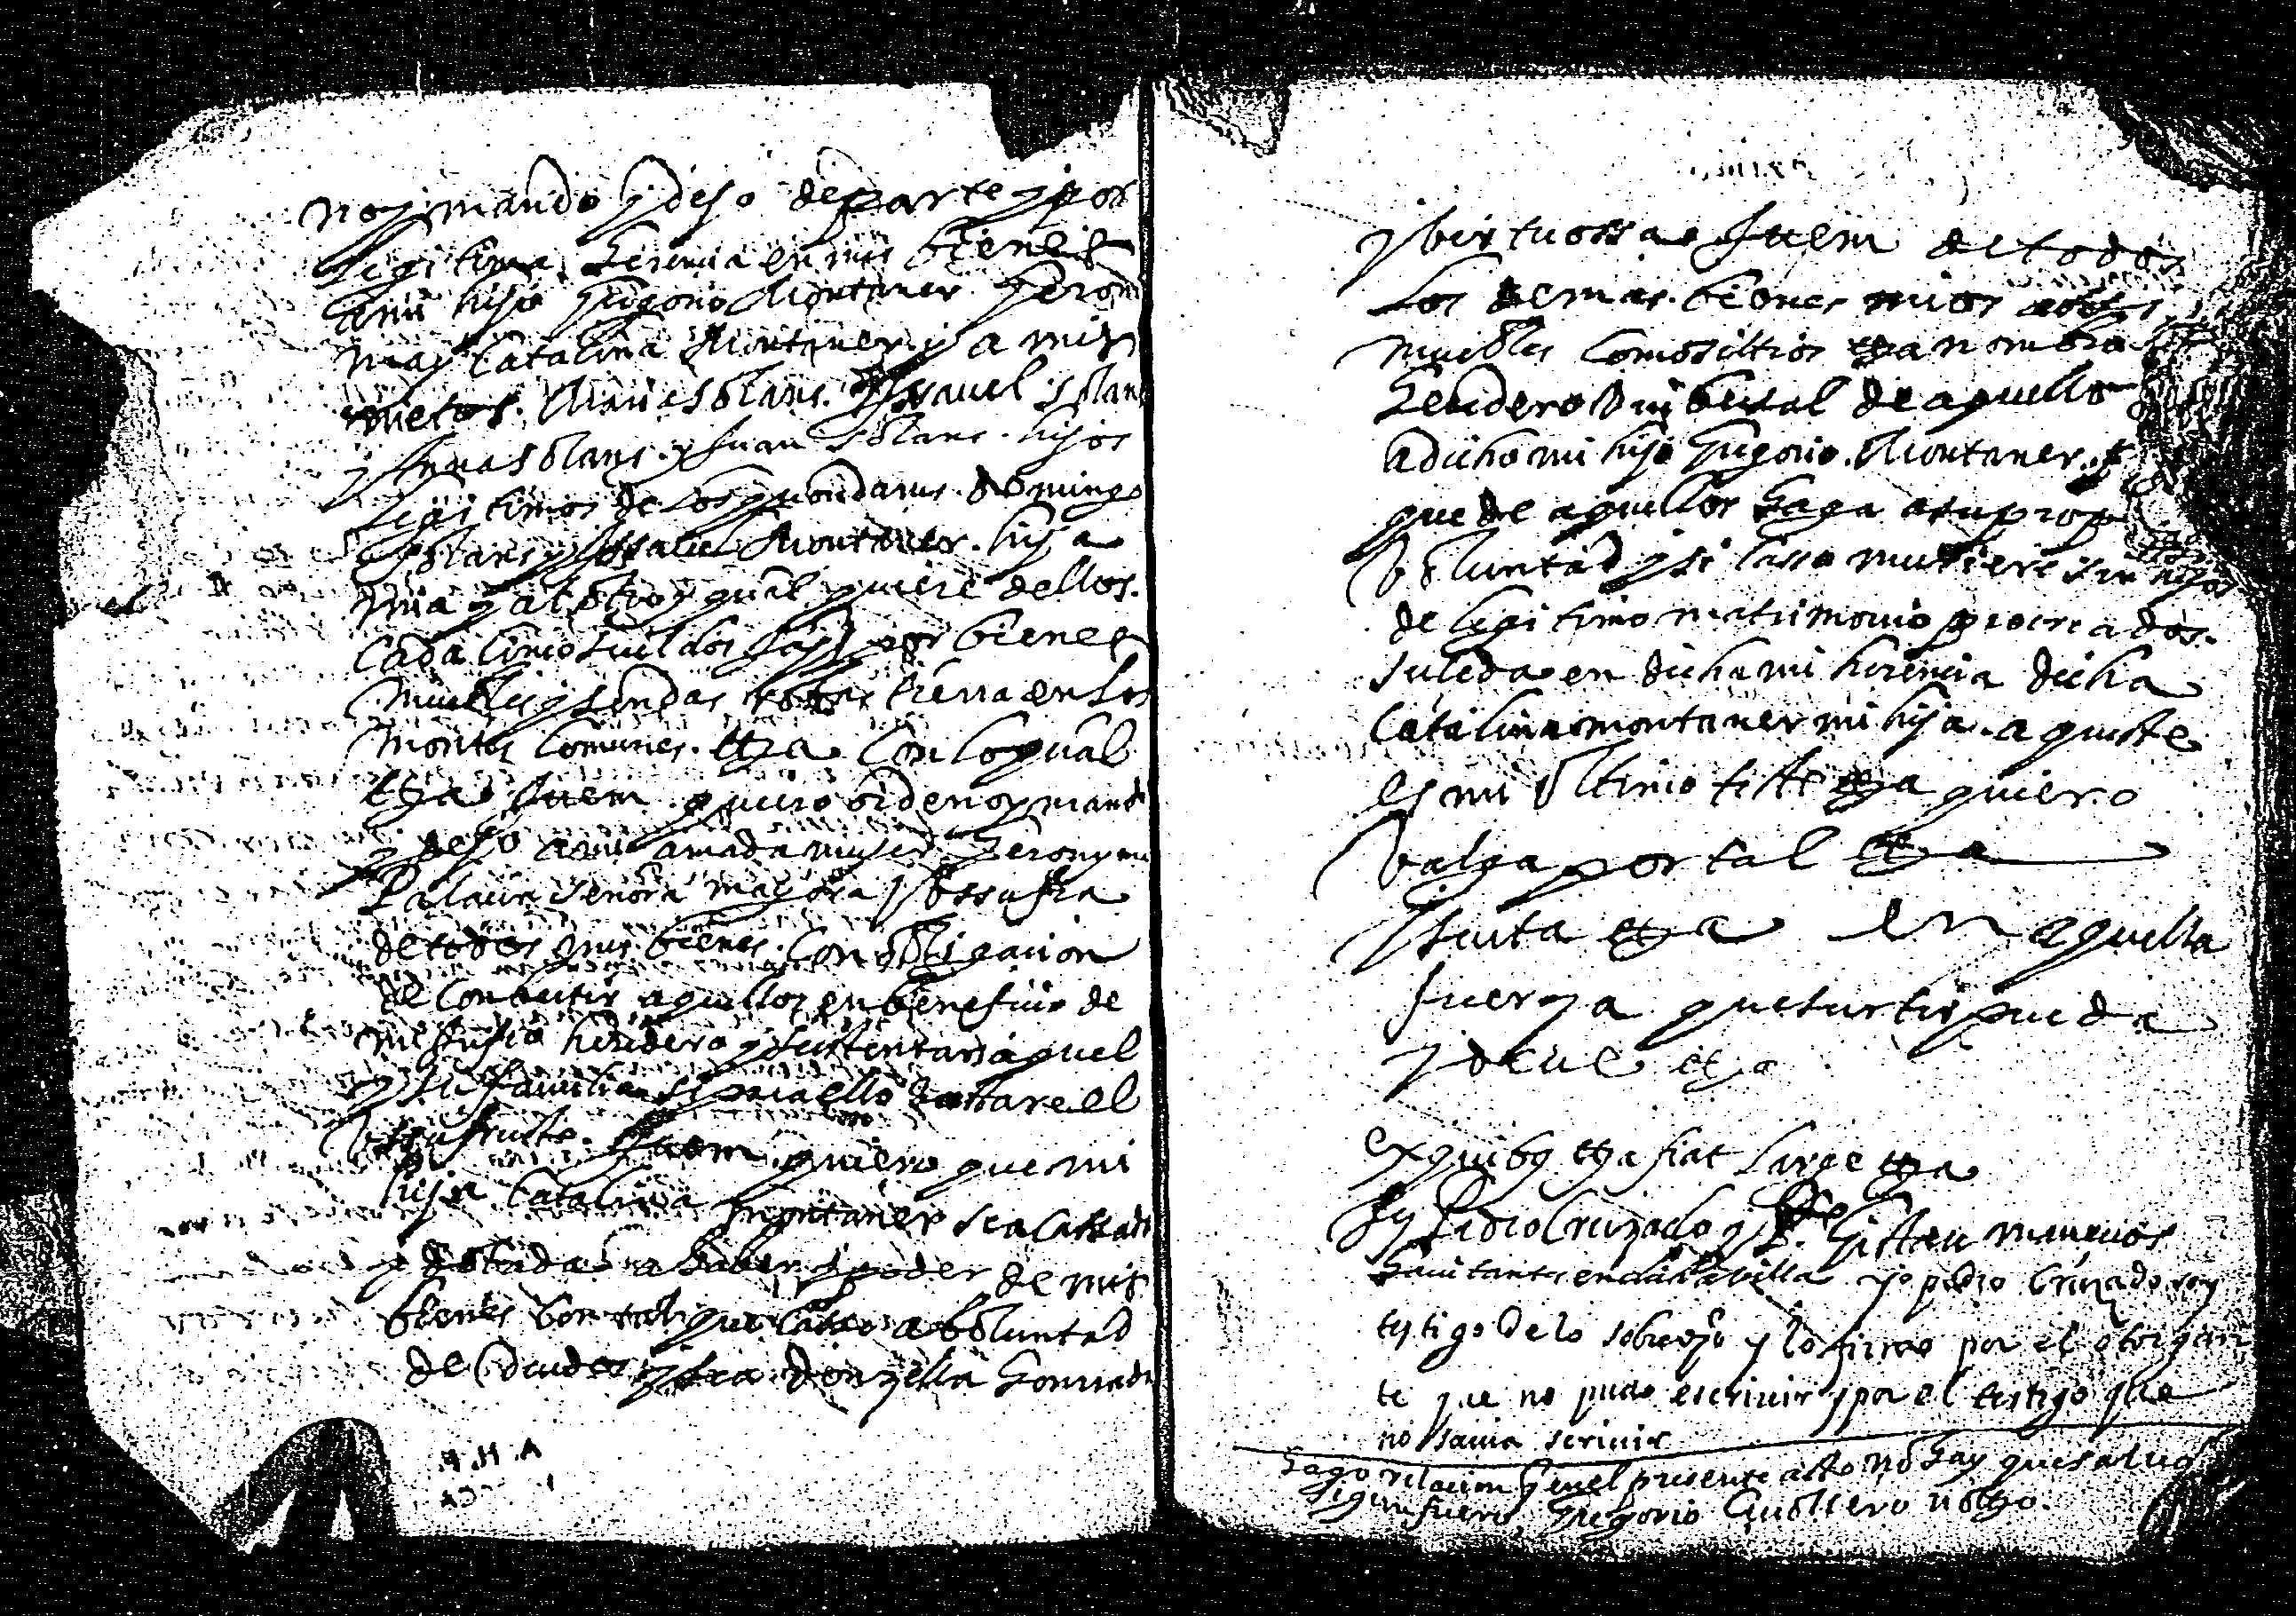 no y mando y dejo de parte y por
legitima herencia en mis bienes
a mi hijo Gregorio Montaner Heroni
ma y Catalina Montaner y a mis
nietos Maria solans Yssauel solans
y Anna solans y Juan solans hijos
legitimos de los quondams Domingo
solans y Yssauel Montaner hija
mia y al otro y qual quiere dellos
cada cinco sueldos por bienes
muebles y sendas tierra en los
montes comunes etta con lo qual
etta Item quiero ordeno y mando
y dejo a mi amada mujer Heronyma
Palacin señora mayora y ussufra
de todos mis bienes con obligacion
de conbertir aquellos en beneficio de
heredero y sustentar a aquel
y su familia si para ello bastare el
ussufructo Item quiero que mi
hija Catalina Montaner sea cassada
y dotada a haber y poder de mis
bienes con tal que casse a boluntad
de deudos y sea donzella honrrada
y birtuossa Item de todos
los demas bienes mios
muebles como sittios etta nombro
heredero unibersal de aquellos
a dicho mi hijo Gregorio Montaner
que de aquellos haga a su prop
boluntad y si casso muriere sin hijos
de legitimo matrimonio procreados
suceda en dicha mi herencia dicha
Catalina montaner mi hija aqueste
es mi ultimo testt etta quiero
balga por tal etta
y sinta etta en aquella
fuerza que surtir pueda
y deue etta
ex quibus etta fiat large etta
Ts Pedro Cruzado y Gistau mancuos
hauitantes en dicha villa yo pedro Cruzado soy
testigo de lo sobredjo y lo firmo por el otorgan
te que no pudo escriuir y por el testigo que
no sauia scriuir
Hago relacion q en el presente acto no hay que saluar
segun fuero Gregorio Guollero notto.
A. H. P.